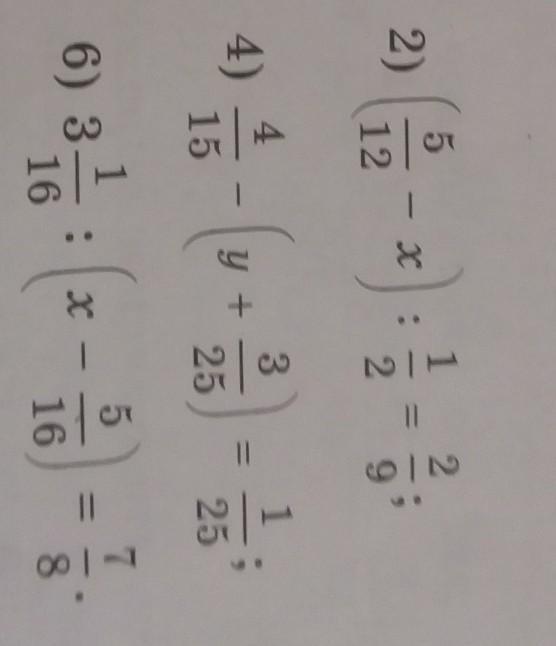 2) (5/12 − x) : 1/2 = 2/9;
4) 4/15 − (y + 3/25) = 1/25;
6) 3 1/16 : (x − 5/16) = 7/8.